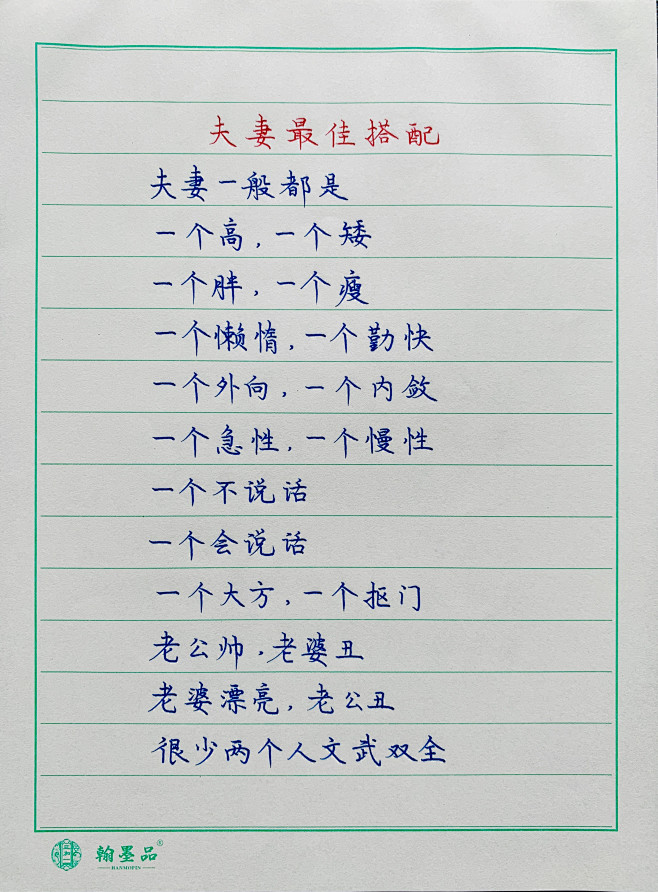 夫妻最佳搭配
夫妻一般都是
一个高,一个矮
一个胖,一个瘦
一个懒惰,一个勤快
一个外向,一个内敛
一个急性,一个慢性
一个不说话
一个会说话
一个大方,一个抠门
老公帅,老婆丑
老婆漂亮,老公丑
很少两个人文武双全
翰墨品®
HANMOPIN